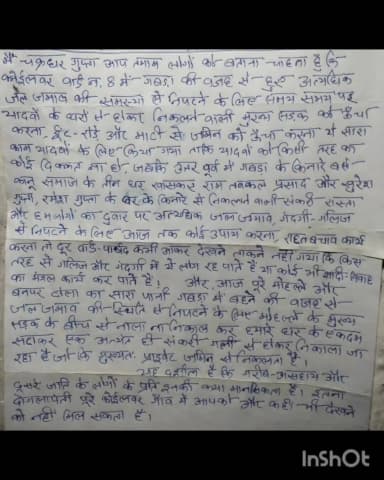 मैं चक्रधर गुप्ता आप तमाम लोगों को बताना चाहता हूँ कि
कोईलवर वार्ड न. 8 में गखडा की वजह से हुए अत्यधिक
जल जमाव की समस्या से निपटने के लिए समय समय पर
यादवों के घरों से होकर निकलने वाली मुख्य सड़क को ऊँचा
करना, ईंट-रोड़े और माटी से जमिन को ऊँचा करना ये सारा
काम यादवों के लिए किया गया ताकि यादवों को किसी तरह का
कोई दिक्कत ना हो जबकि उत्तर पूर्व में गखडा के किनारे बसे
कानू समाज के तीन घर खासकर राम प्रसाद और सुरेश
गुप्ता, रमेश गुप्ता के घर के किनारे से निकलने वाली संकरी रास्ता
और हमलोगों का दुवार पर अत्यधिक जल जमाव, गंदगी-गलिज
से निपटने के लिए आज तक कोई उपाय करना, राहत बचाव कार्य
करना तो दूर वार्ड-पार्षद कभी आकर देखने ताकने नहीं गया कि किस
तरह से गलिज और गंदगी में ये लोग रह पाते हैं या कोई भी शादी-विवाह
का मंगल कार्य कर पाते हैं। और आज पूरे मोहल्ले और
बनपर टोला का सारा पानी गखडा में बहने की वजह से
जल जमाव की स्थिति से निपटने के लिए मोहल्ले के मुख्य
सड़क के बीच से नाला ना निकाल कर हमारे घर के एकदम
सटाकर एक अत्यंत ही संकरी गली से होकर निकाला जा
रहा है जो कि मुख्यतः प्राइवेट जमिन से निकलता है।
यह दर्शाता है कि गरीब-असहाय और
दूसरे जाति के लोगों के प्रति इनकी क्या मानसिकता है। इतना
दोगलापंती पूरे कोईलवर गाँव में आपको और कहीं भी देखने
को नहीं मिल सकता है।
InShOt